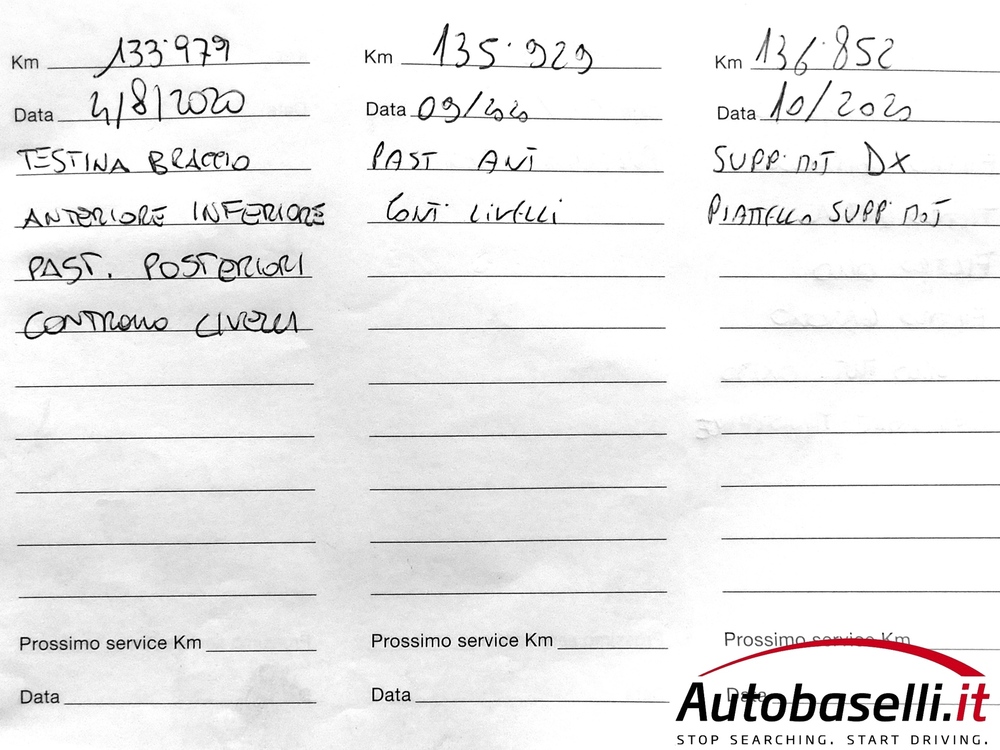 Km 133.979
Data 4/8/2020
TESTINA BRACCIO
ANTERIORE INFERIORE
PAST. POSTERIORI
CONTROLLO LIVELLI
Prossimo service Km
Data
Km 135.929
Data 09/2020
PAST ANT
CONT LIVELLI
Prossimo service Km
Data
Km 136.852
Data 10/2020
SUPP. MOT DX
PIATTELLO SUPP MOT
Prossimo service Km
Data
Autobaselli.it
STOP SEARCHING. START DRIVING.